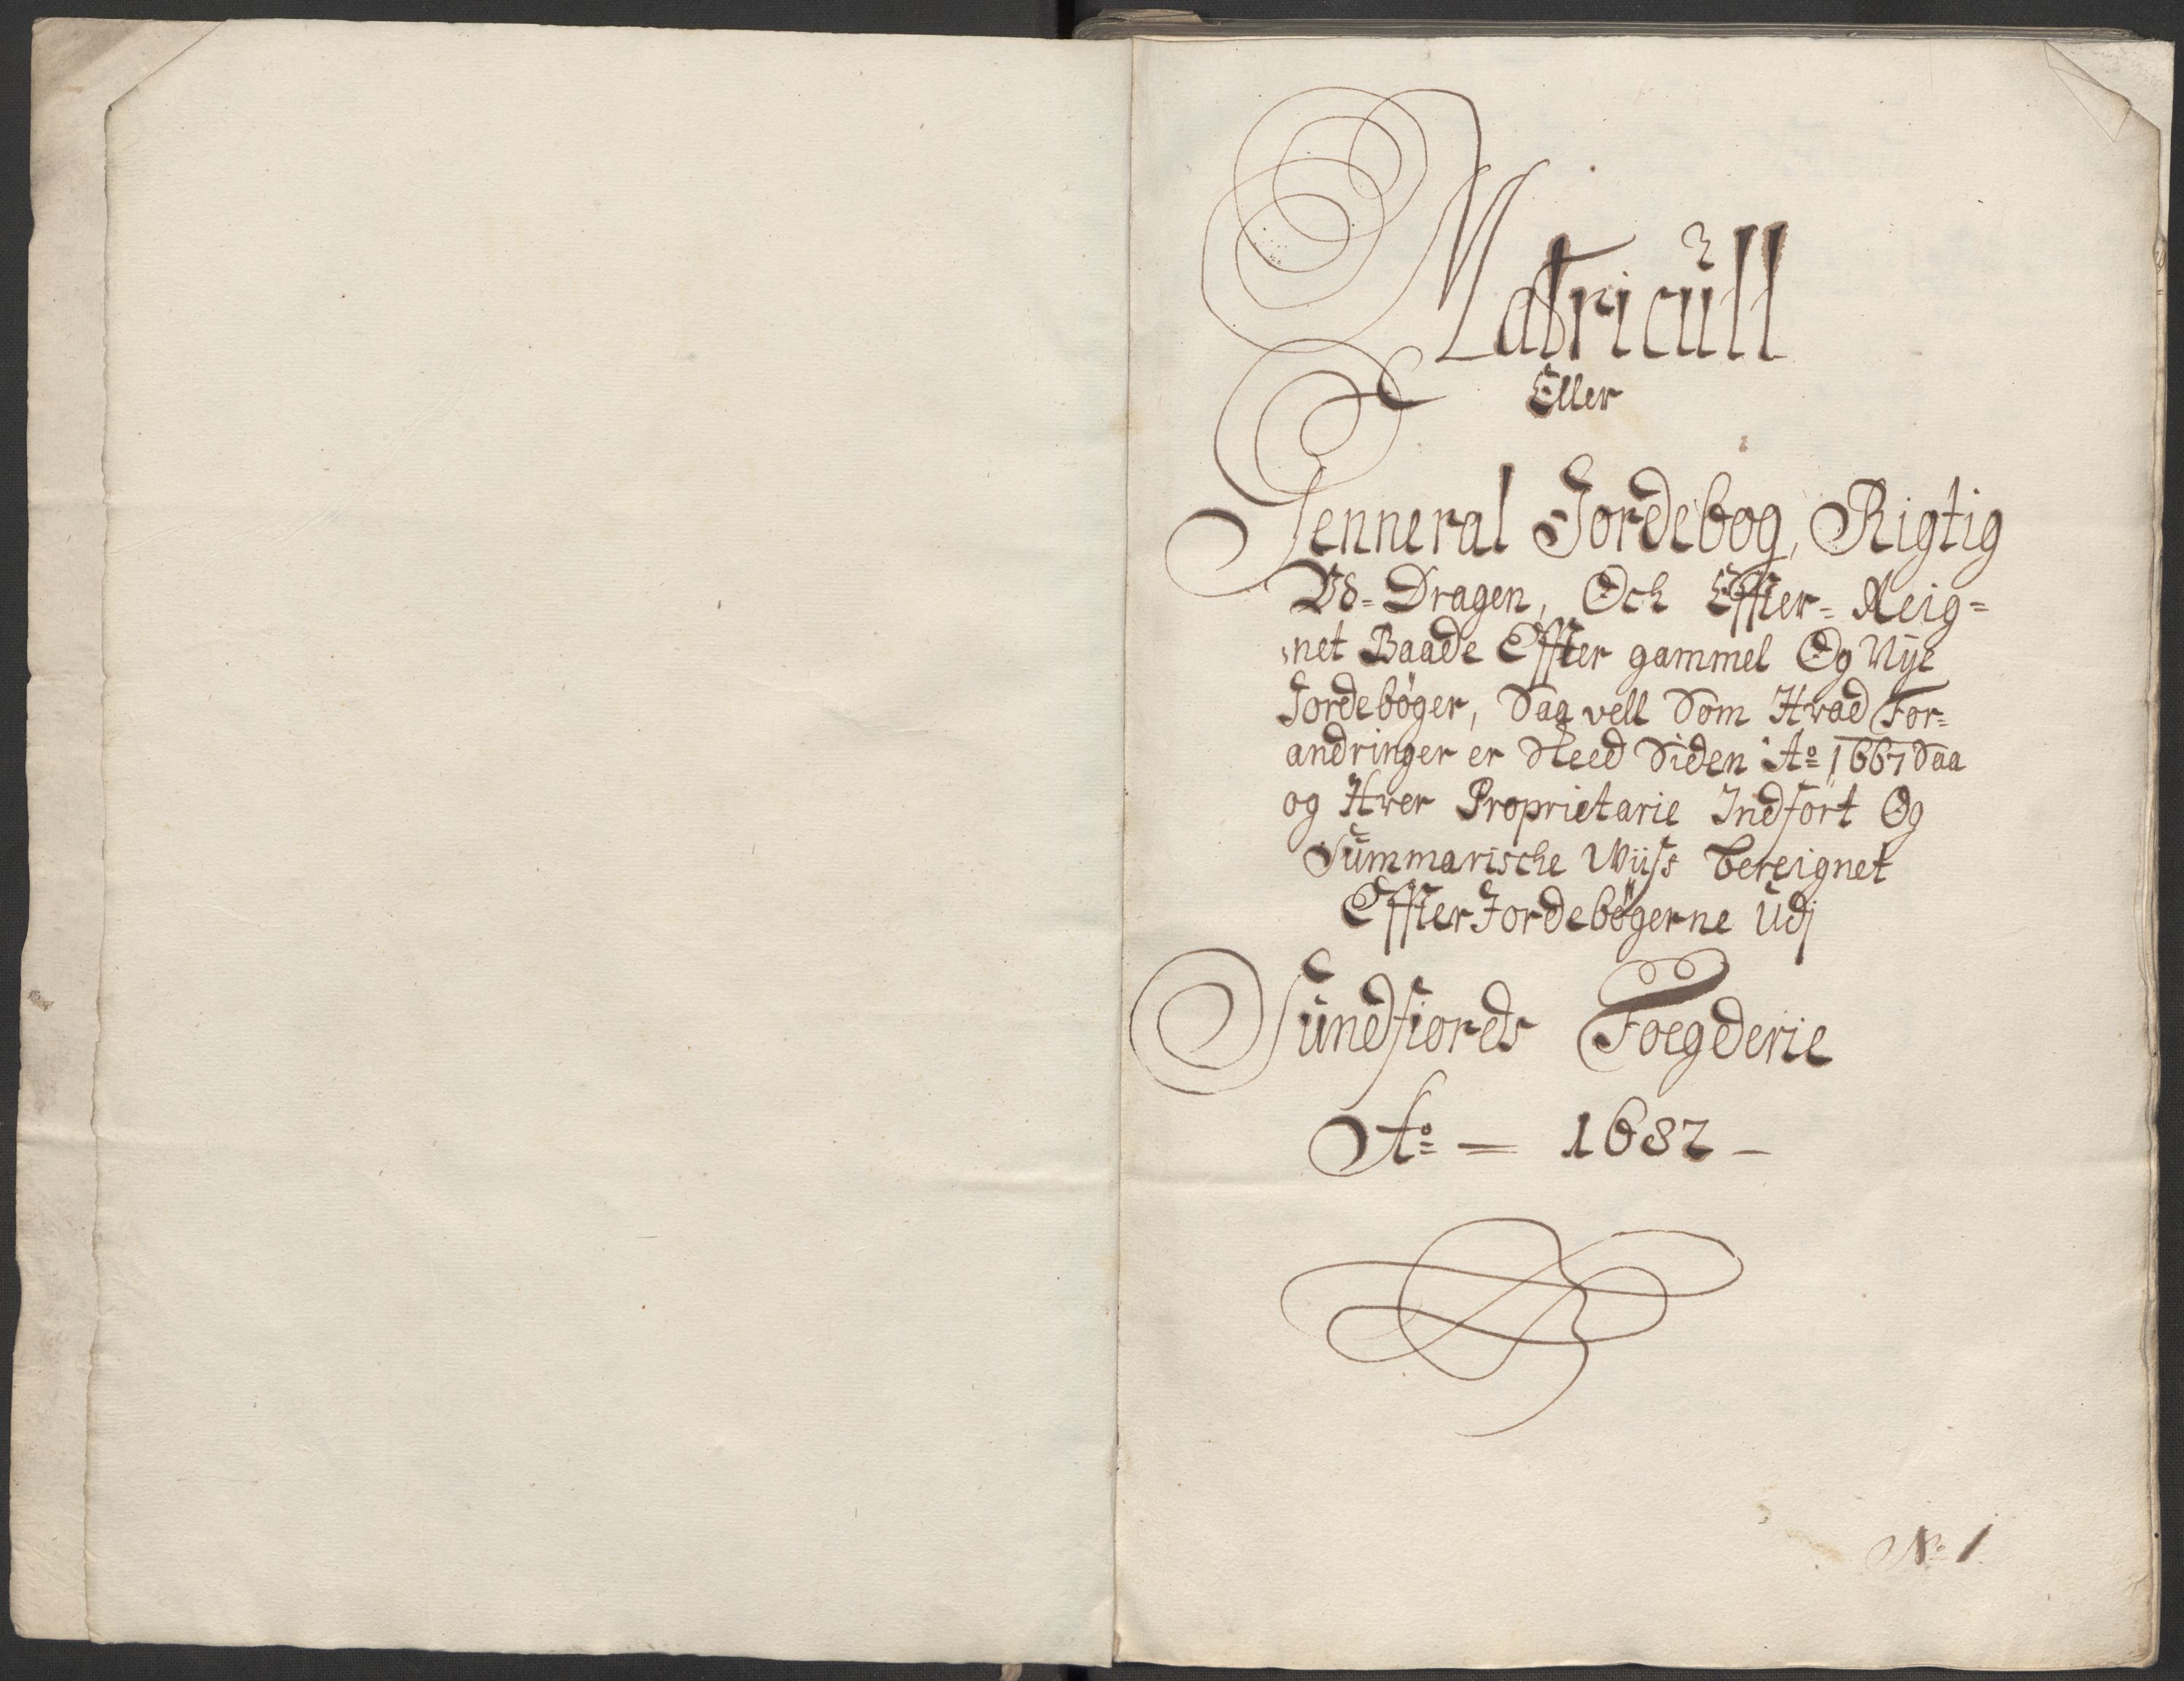 Matricull
Eller
Jenneral Jordebog, Rigtig
Vd-Dragen, Och Effter-Reig=
net Baade Effter gammel Og Nÿe
Jordebøger, Saa vell Som Hvad For=
andringer er Skeed Siden Ao 1667 Saa
og Hver Proprietarie Indfort Og
Summarische Wiiss bereignet
Effter Jordebøgerne Udj
Sundfiords Foegderie
Ao — 1687 —
No 1